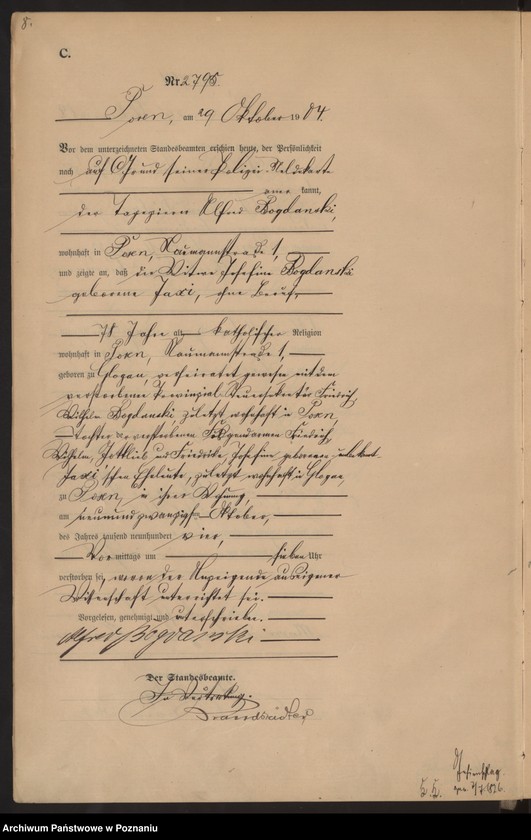 8.
C.
Nr. 2795
Posen, am 29 Oktober 1904.
Vor dem unterzeichneten Standesbeamten erschien heute, der Persönlichkeit
nach auf Grund seiner Polizei-Meldekarte
kannt,
der Tapezierer Alfred Bogdanski,
wohnhaft in Posen, Naumannstraße 1,
und zeigte an, daß die Witwe Josefine Bogdanski
geborene Jaxi, ohne Beruf,
78 Jahre alt, katholischer Religion
wohnhaft in Posen, Naumannstraße 1,
geboren zu Glogau, verheiratet gewesen mit dem
verstorbenen Provinzial-Steuersekretär Friedrich
Wilhelm Bogdanski, zuletzt wohnhaft in Posen,
Tochter der verstorbenen Friedrich
Wilhelm, Gottlieb und Friedricke Josefine geborenen unbekannt
Jaxi'schen Eheleute, zuletzt wohnhaft in Glogau,
zu Posen, in ihrer Wohnung,
am neunundzwanzigsten Oktober,
des Jahres tausend neunhundert vier,
Vormittags um sieben Uhr
verstorben sei, wovon der Anzeigende aus eigener
Wissenschaft unterrichtet sei.
Vorgelesen, genehmigt und unterschrieben.
Alfred Bogdanski
Der Standesbeamte.
In Vertretung.
Archiwum Państwowe w Poznaniu